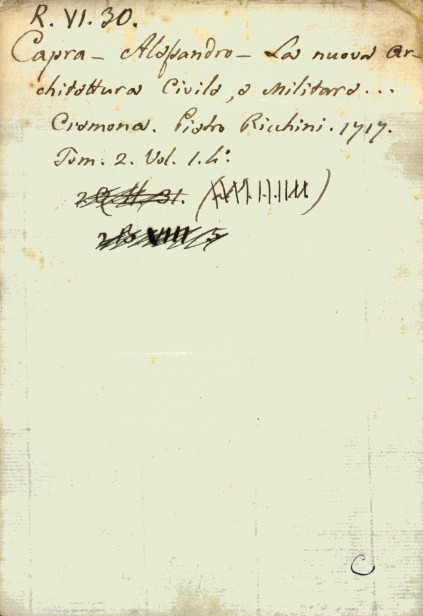 R. VI. 30.
Capra - Alessandro - La nuova ar-
chitettura Civile, e Militare...
Cremona. Pietro Ricchini. 1717.
Tom. 2. Vol. 1. 4°.
C